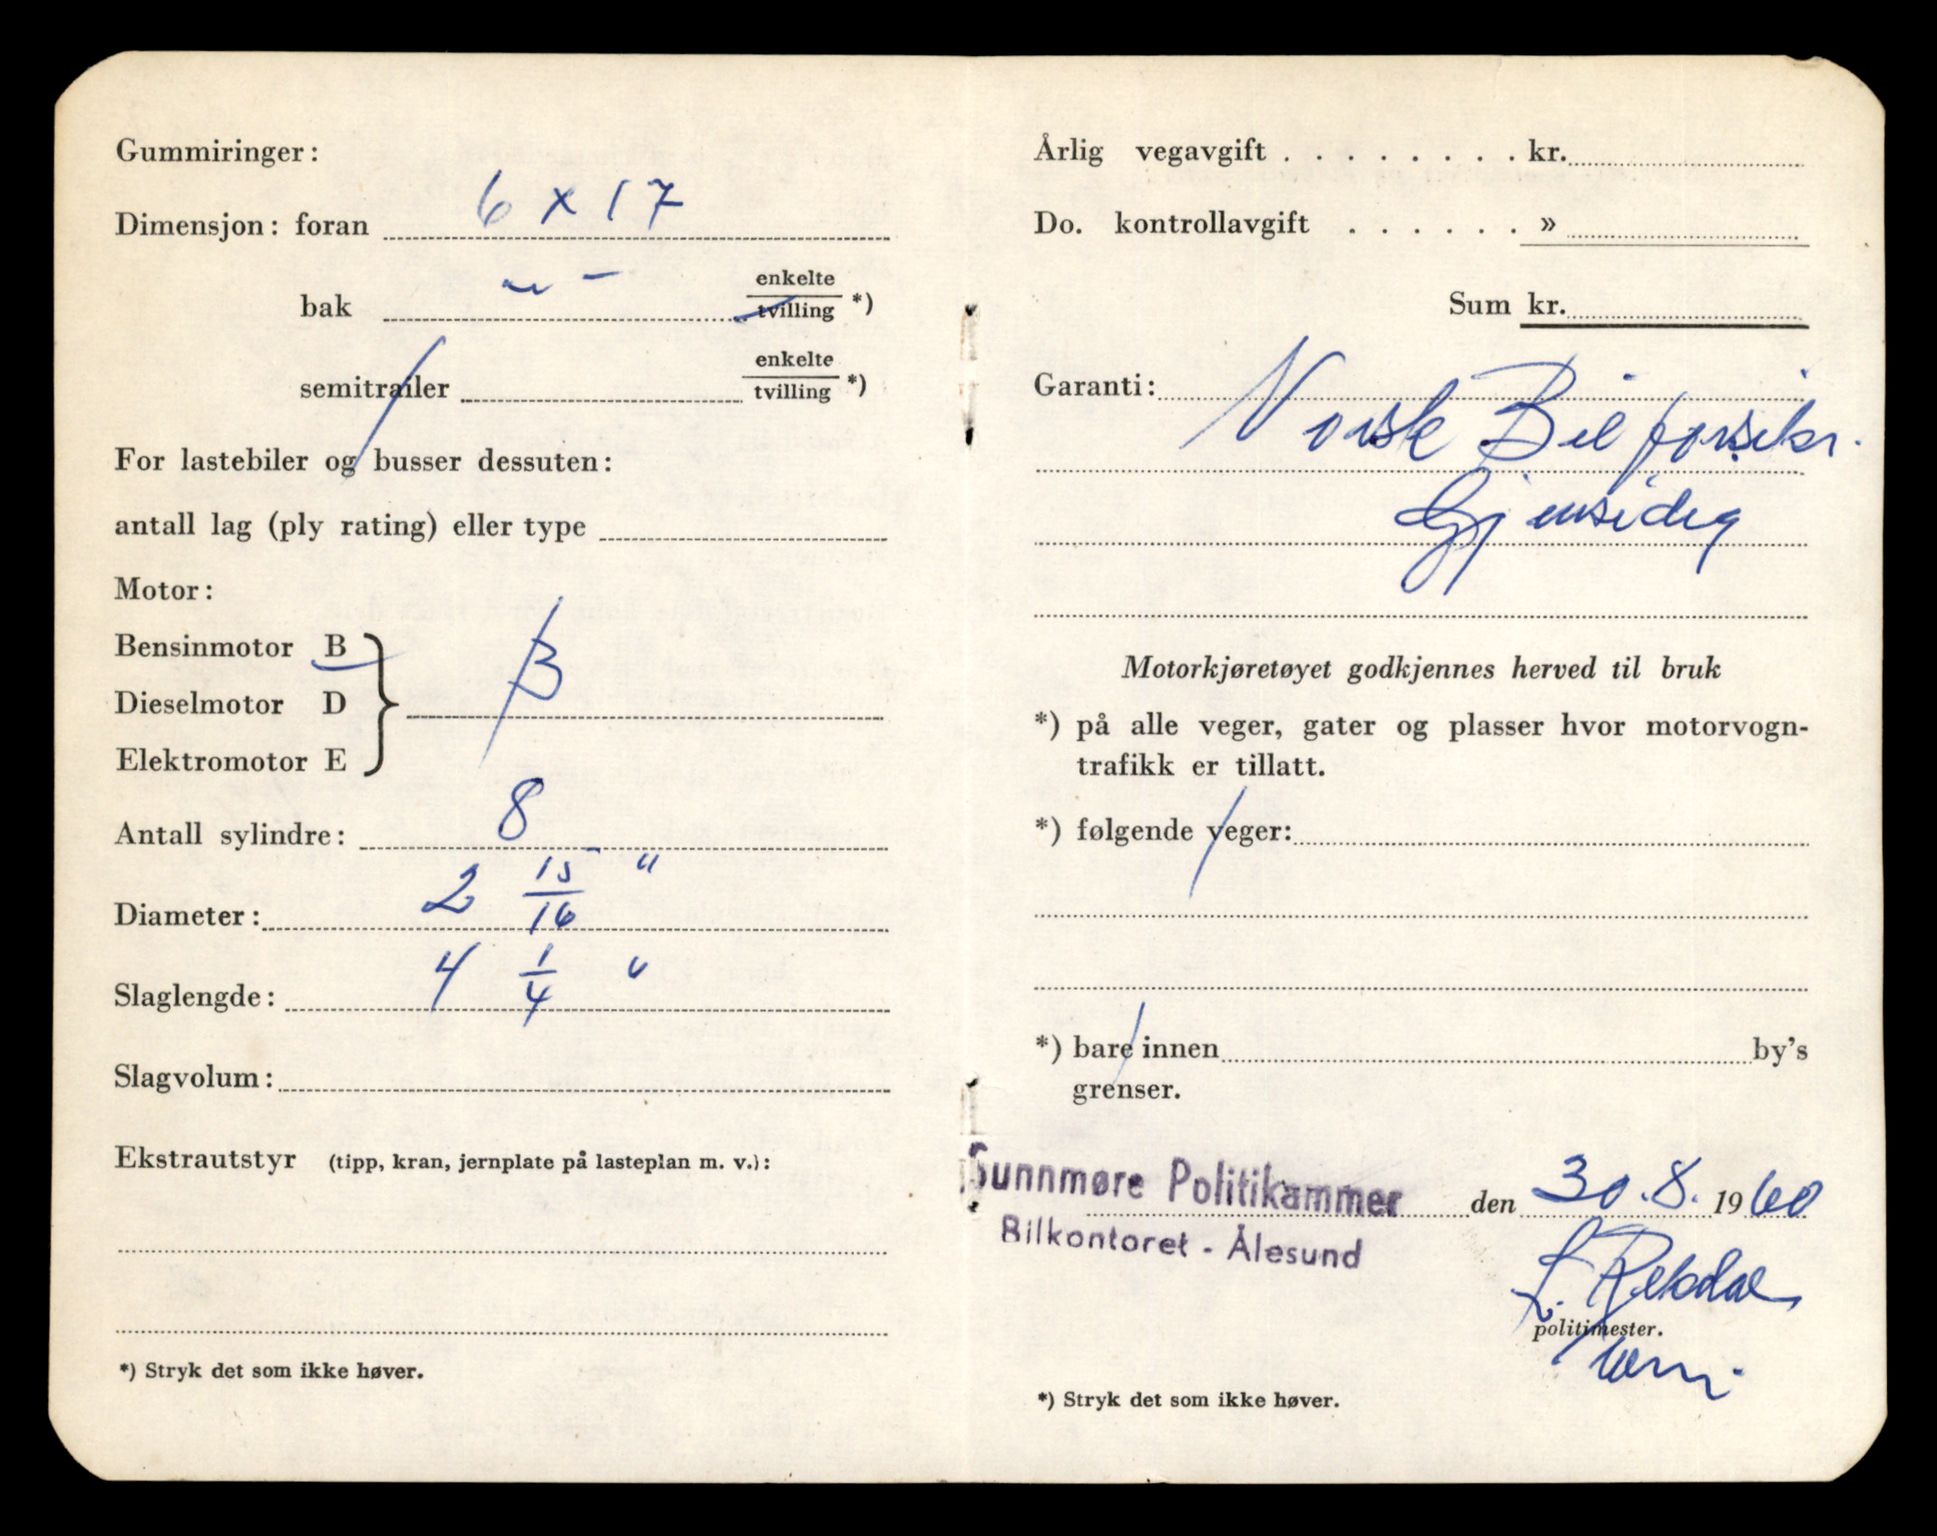 Gummiringer:
Dimensjon: foran 6 x 17
bak — " — enkelte / tvilling *)
semitrailer enkelte / tvilling *)
For lastebiler og busser dessuten:
antall lag (ply rating) eller type
Motor:
Bensinmotor B
Dieselmotor D B
Elektromotor E
Antall sylindre: 8
Diameter: 2 15/16 "
Slaglengde: 4 1/4 "
Slagvolum:
Ekstrautstyr (tipp, kran, jernplate på lasteplan m. v.):
*) Stryk det som ikke høver.
Årlig vegavgift . . . . . . . . kr.
Do. kontrollavgift . . . . . . »
Sum kr.
Garanti: Norsk Bilforsikr.
Gjensidig
Motorkjøretøyet godkjennes herved til bruk
*) på alle veger, gater og plasser hvor motorvogn-
trafikk er tillatt.
*) følgende veger:
*) bare innen by's
grenser.
Sunnmøre Politikammer den 30.8. 1960
Bilkontoret - Ålesund
L. Rekdal
politimester.
*) Stryk det som ikke høver.